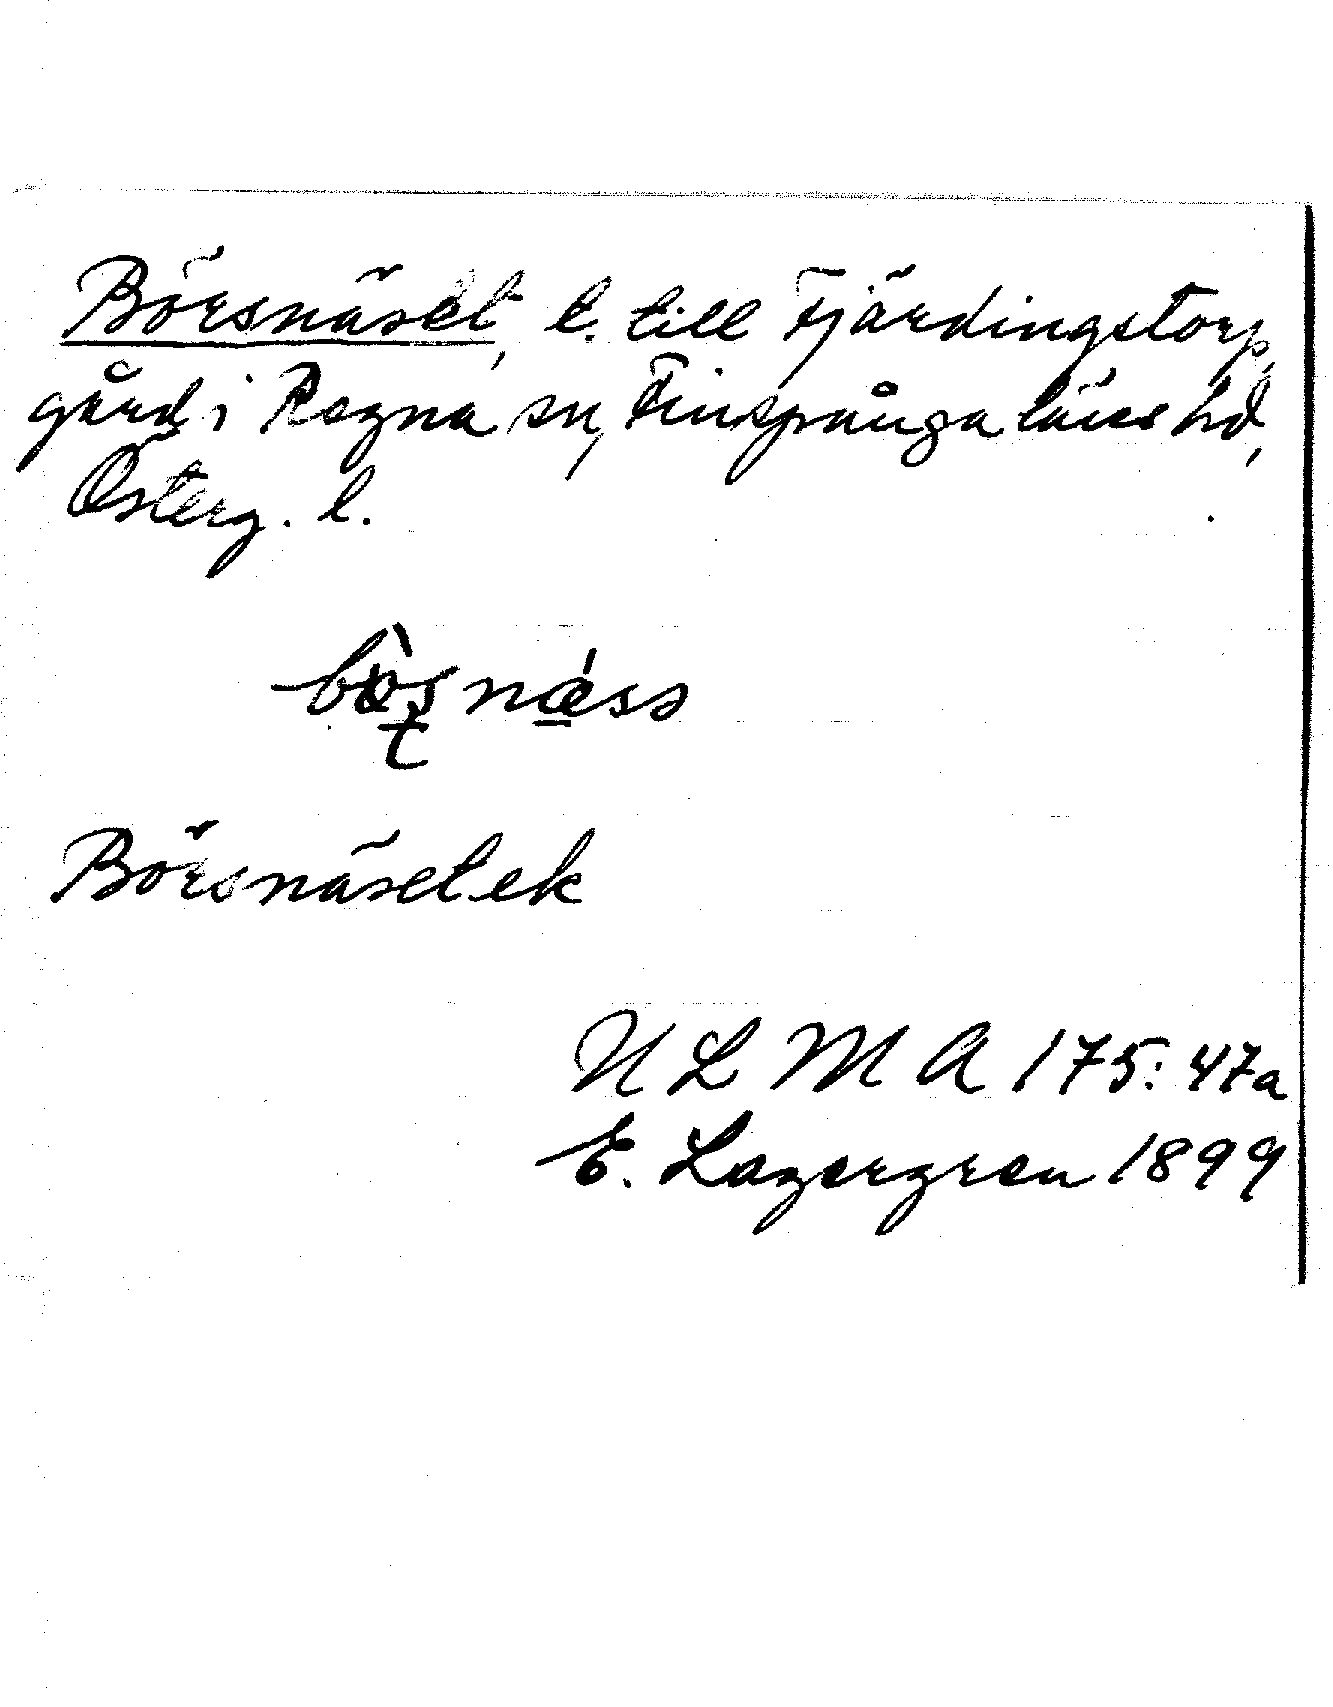 Börsnäset, l. till Fjärdingstorp,
gård i Regna sn, Finspånga läns hd,
Österg. l.
Börsnäset ek
ULMA 175:47a
E. Lagergren 1899